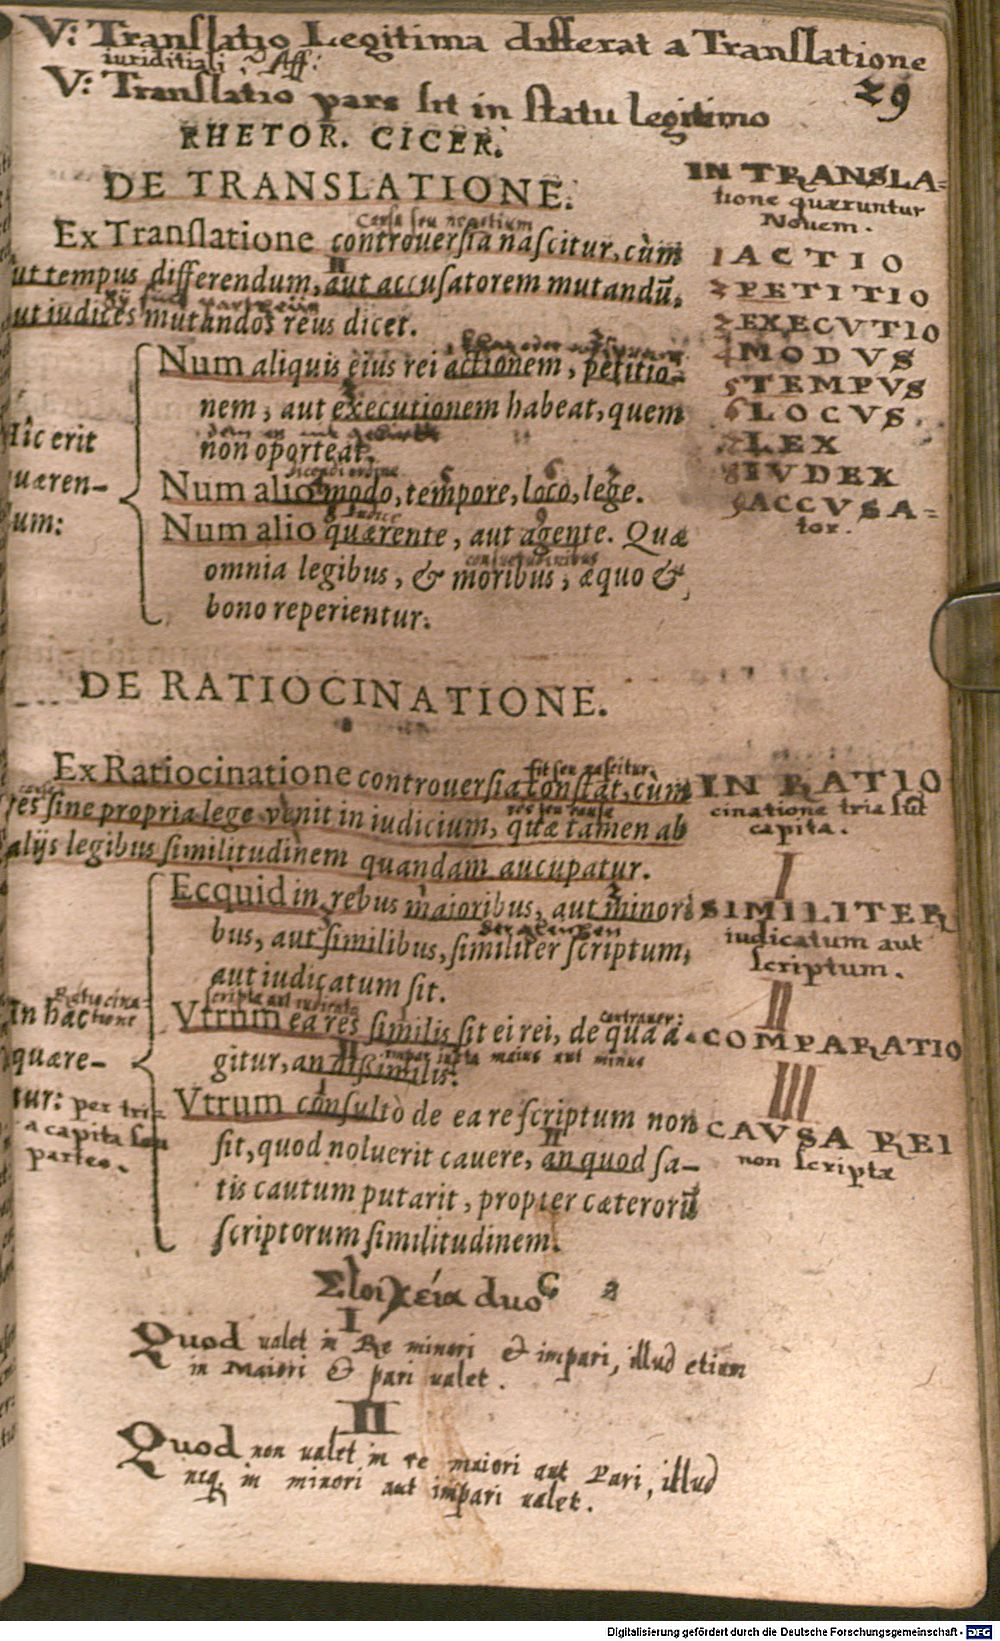 V: Translatio Legitima differat a Translatione
iuriditiali. Aff:
29
V: Translatio pars sit in statu legitimo
RHETOR. CICER.
DE TRANSLATIONE.
Causa seu negotium
Ex Translatione controuersia nascitur, cùm
ut tempus differendum, aut accusatorem mutandū,
ut iudices mutandos reus dicet.
Hîc erit
quæren-
dum:
Num aliquis eius rei actionem, petitio-
nem, aut executionem habeat, quem
non oporteat.
dicendi ordine
Num alio modo, tempore, loco, lege.
Iudice
Num alio quærente, aut agente. Quæ
consuetudinibus
omnia legibus, & moribus, æquo &
bono reperientur.
IN TRANSLA-
tione quæruntur
Nouem.
1 ACTIO
2 PETITIO
3 EXECVTIO
4 MODVS
5 TEMPVS
6 LOCVS.
7 LEX
8 IVDEX
9 ACCVSA-
tor.
DE RATIOCINATIONE.
sit seu nascitur
Ex Ratiocinatione controuersia constat, cùm
causa
res sine propria lege venit in iudicium, quæ tamen ab
res seu causa
alijs legibus similitudinem quandam aucupatur.
Ratiocina-
tione
In hac
quære-
tur: per tri-
a capita seu
partes.
Ecquid in rebus maioribus, aut minori
bus, aut similibus, similiter scriptum,
dergleichen
aut iudicatum sit.
scripta aut iudicata
Vtrum ea res similis sit ei rei, de qua a-
controuer:
gitur, an dissimilis.
impar iuxta maius aut minus
Vtrum consultò de ea re scriptum non
sit, quod noluerit cauere, an quod sa-
tis cautum putarit, propter cæterorū
scriptorum similitudinem.
IN RATIO
cinatione tria sūt
capita.
I
SIMILITER
iudicatum aut
scriptum.
II
COMPARATIO
III
CAVSA REI
non scriptæ
Στοιχεία duo
2
I
Quod ualet in Re minori & impari, illud etiam
in Maiori & pari ualet.
II
Quod non ualet in re maiori aut Pari, illud
neq. in minori aut impari ualet.
Digitalisierung gefördert durch die Deutsche Forschungsgemeinschaft - DFG